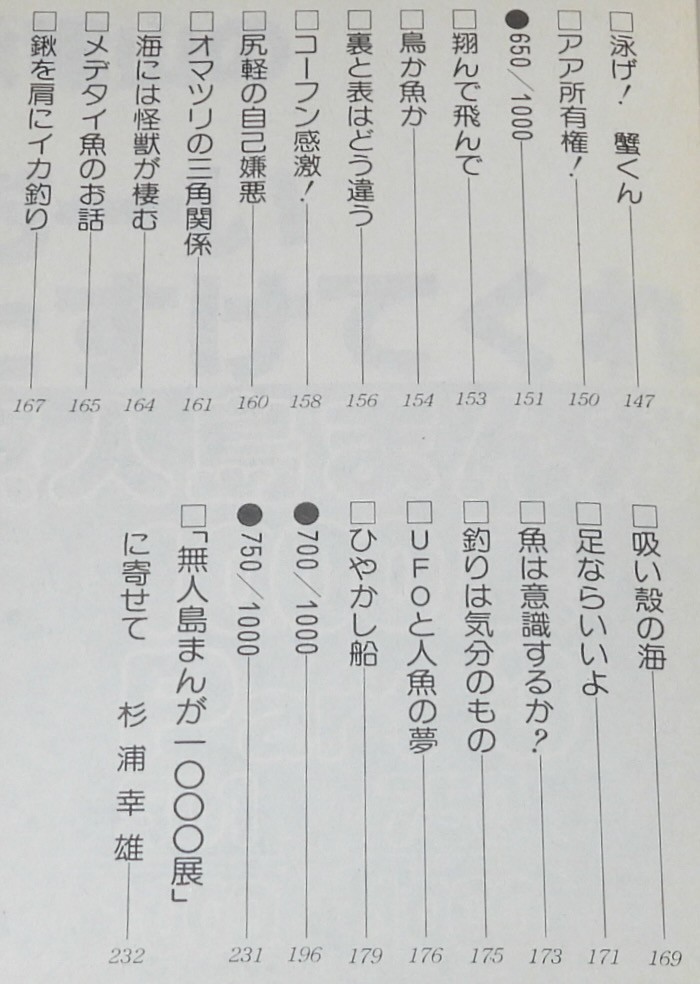 □泳げ！　蟹くん 147
□アア所有権！ 150
●650／1000 151
□翔んで飛んで 153
□鳥か魚か 154
□裏と表はどう違う 156
□コーフン感激！ 158
□尻軽の自己嫌悪 160
□オマツリの三角関係 161
□海には怪獣が棲む 164
□メデタイ魚のお話 165
□鍬を肩にイカ釣り 167
□吸い殻の海 169
□足ならいいよ 171
□魚は意識するか？ 173
□釣りは気分のもの 175
□UFOと人魚の夢 176
□ひやかし船 179
●700／1000 196
●750／1000 231
□「無人島まんが一〇〇〇展」
に寄せて　杉浦幸雄 232